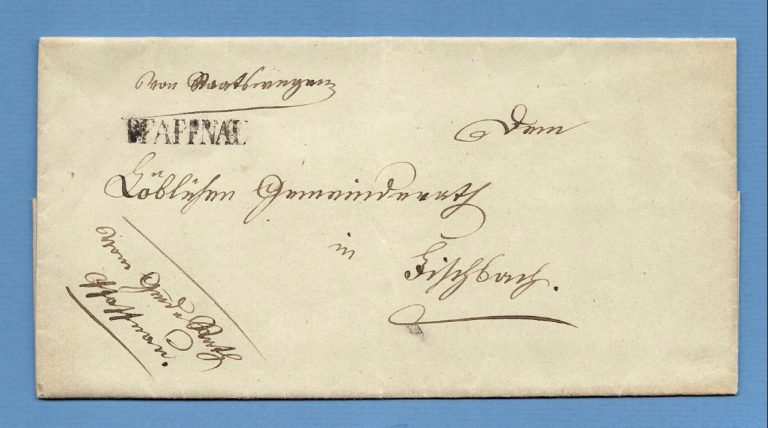 Von Staatswegen
PFAFFNAU
Dem
Löblichen Gemeinderath
in Fischbach.
Vom Gmde Rath
Pfaffnau.